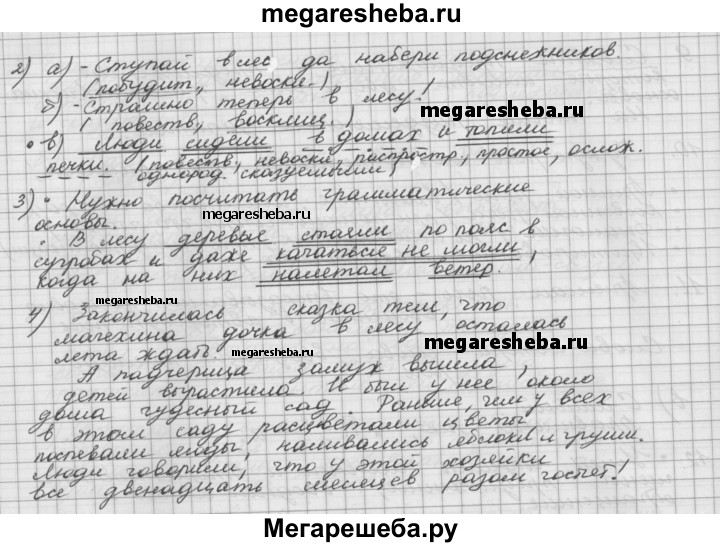 megaresheba.ru
2) а) - Ступай в лес да набери подснежников.
(побудит., невоскл.)
б) - Страшно теперь в лесу!
(повеств., восклиц.)
megaresheba.ru
• в) Люди сидели в домах и топили
печки. (повеств., невоскл., распростр., простое, ослож.
однород. сказуемыми)
3) • Нужно посчитать грамматические
основы.
megaresheba.ru
• В лесу деревья стояли по пояс в
сугробах и даже качаться не могли,
когда на них налетал ветер.
megaresheba.ru
4) Закончилась сказка тем, что
мачехина дочка в лесу осталась
лета ждать.
megaresheba.ru
megaresheba.ru
А падчерица замуж вышла,
детей вырастила. И был у неё около
дома чудесный сад. Раньше, чем у всех
в этом саду расцветали цветы
поспевали ягоды, наливались яблоки и груши.
Люди говорили, что у этой хозяйки
все двенадцать месяцев разом гостят!
Мегарешеба.ру